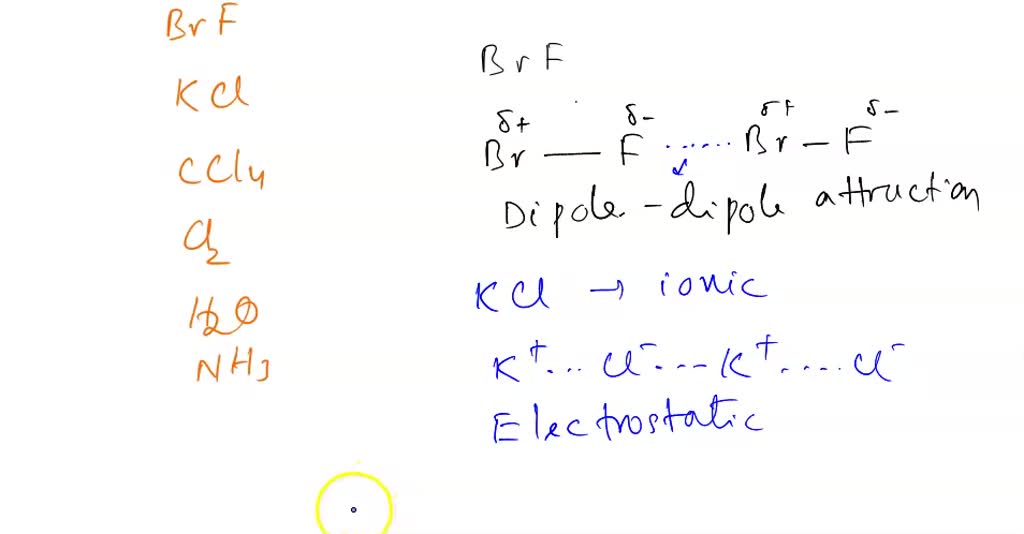 BrF
KCl
CCl4
Cl2
H2O
NH3
BrF
δ+ δ- δ+ δ-
Br — F ...... Br - F
Dipole-dipole attruction
KCl → ionic
K+ ... Cl- --- K+ ..... Cl-
Electrostatic